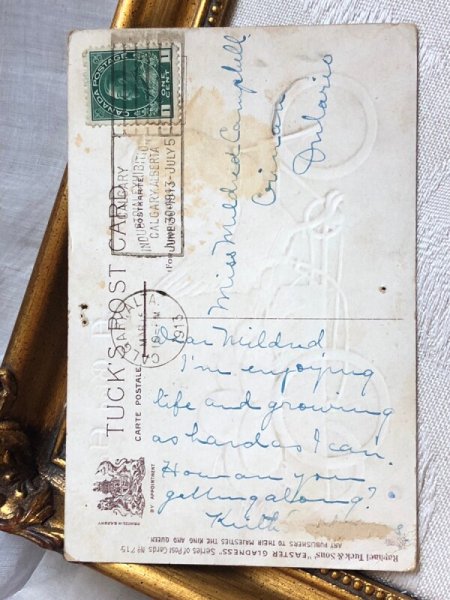 CANADA POSTAGE
1 ONE CENT 1
CALGARY
INDUSTRIAL EXHIBITION
CALGARY, ALBERTA
JUNE 30-1913-JULY 5
POSTKARTE
CALGARY, ALTA
MAR
1913
TUCK'S POST CARD
CARTE POSTALE
BY APPOINTMENT
Miss Mildred Campbell
Crinan
Ontario
Dear Mildred
I'm enjoying
life and growing
as hard as I can.
How are you
getting along?
Keith
Raphael Tuck & Sons' "EASTER GLADNESS" Series of Post Cards No 715
ART PUBLISHERS TO THEIR MAJESTIES THE KING AND QUEEN